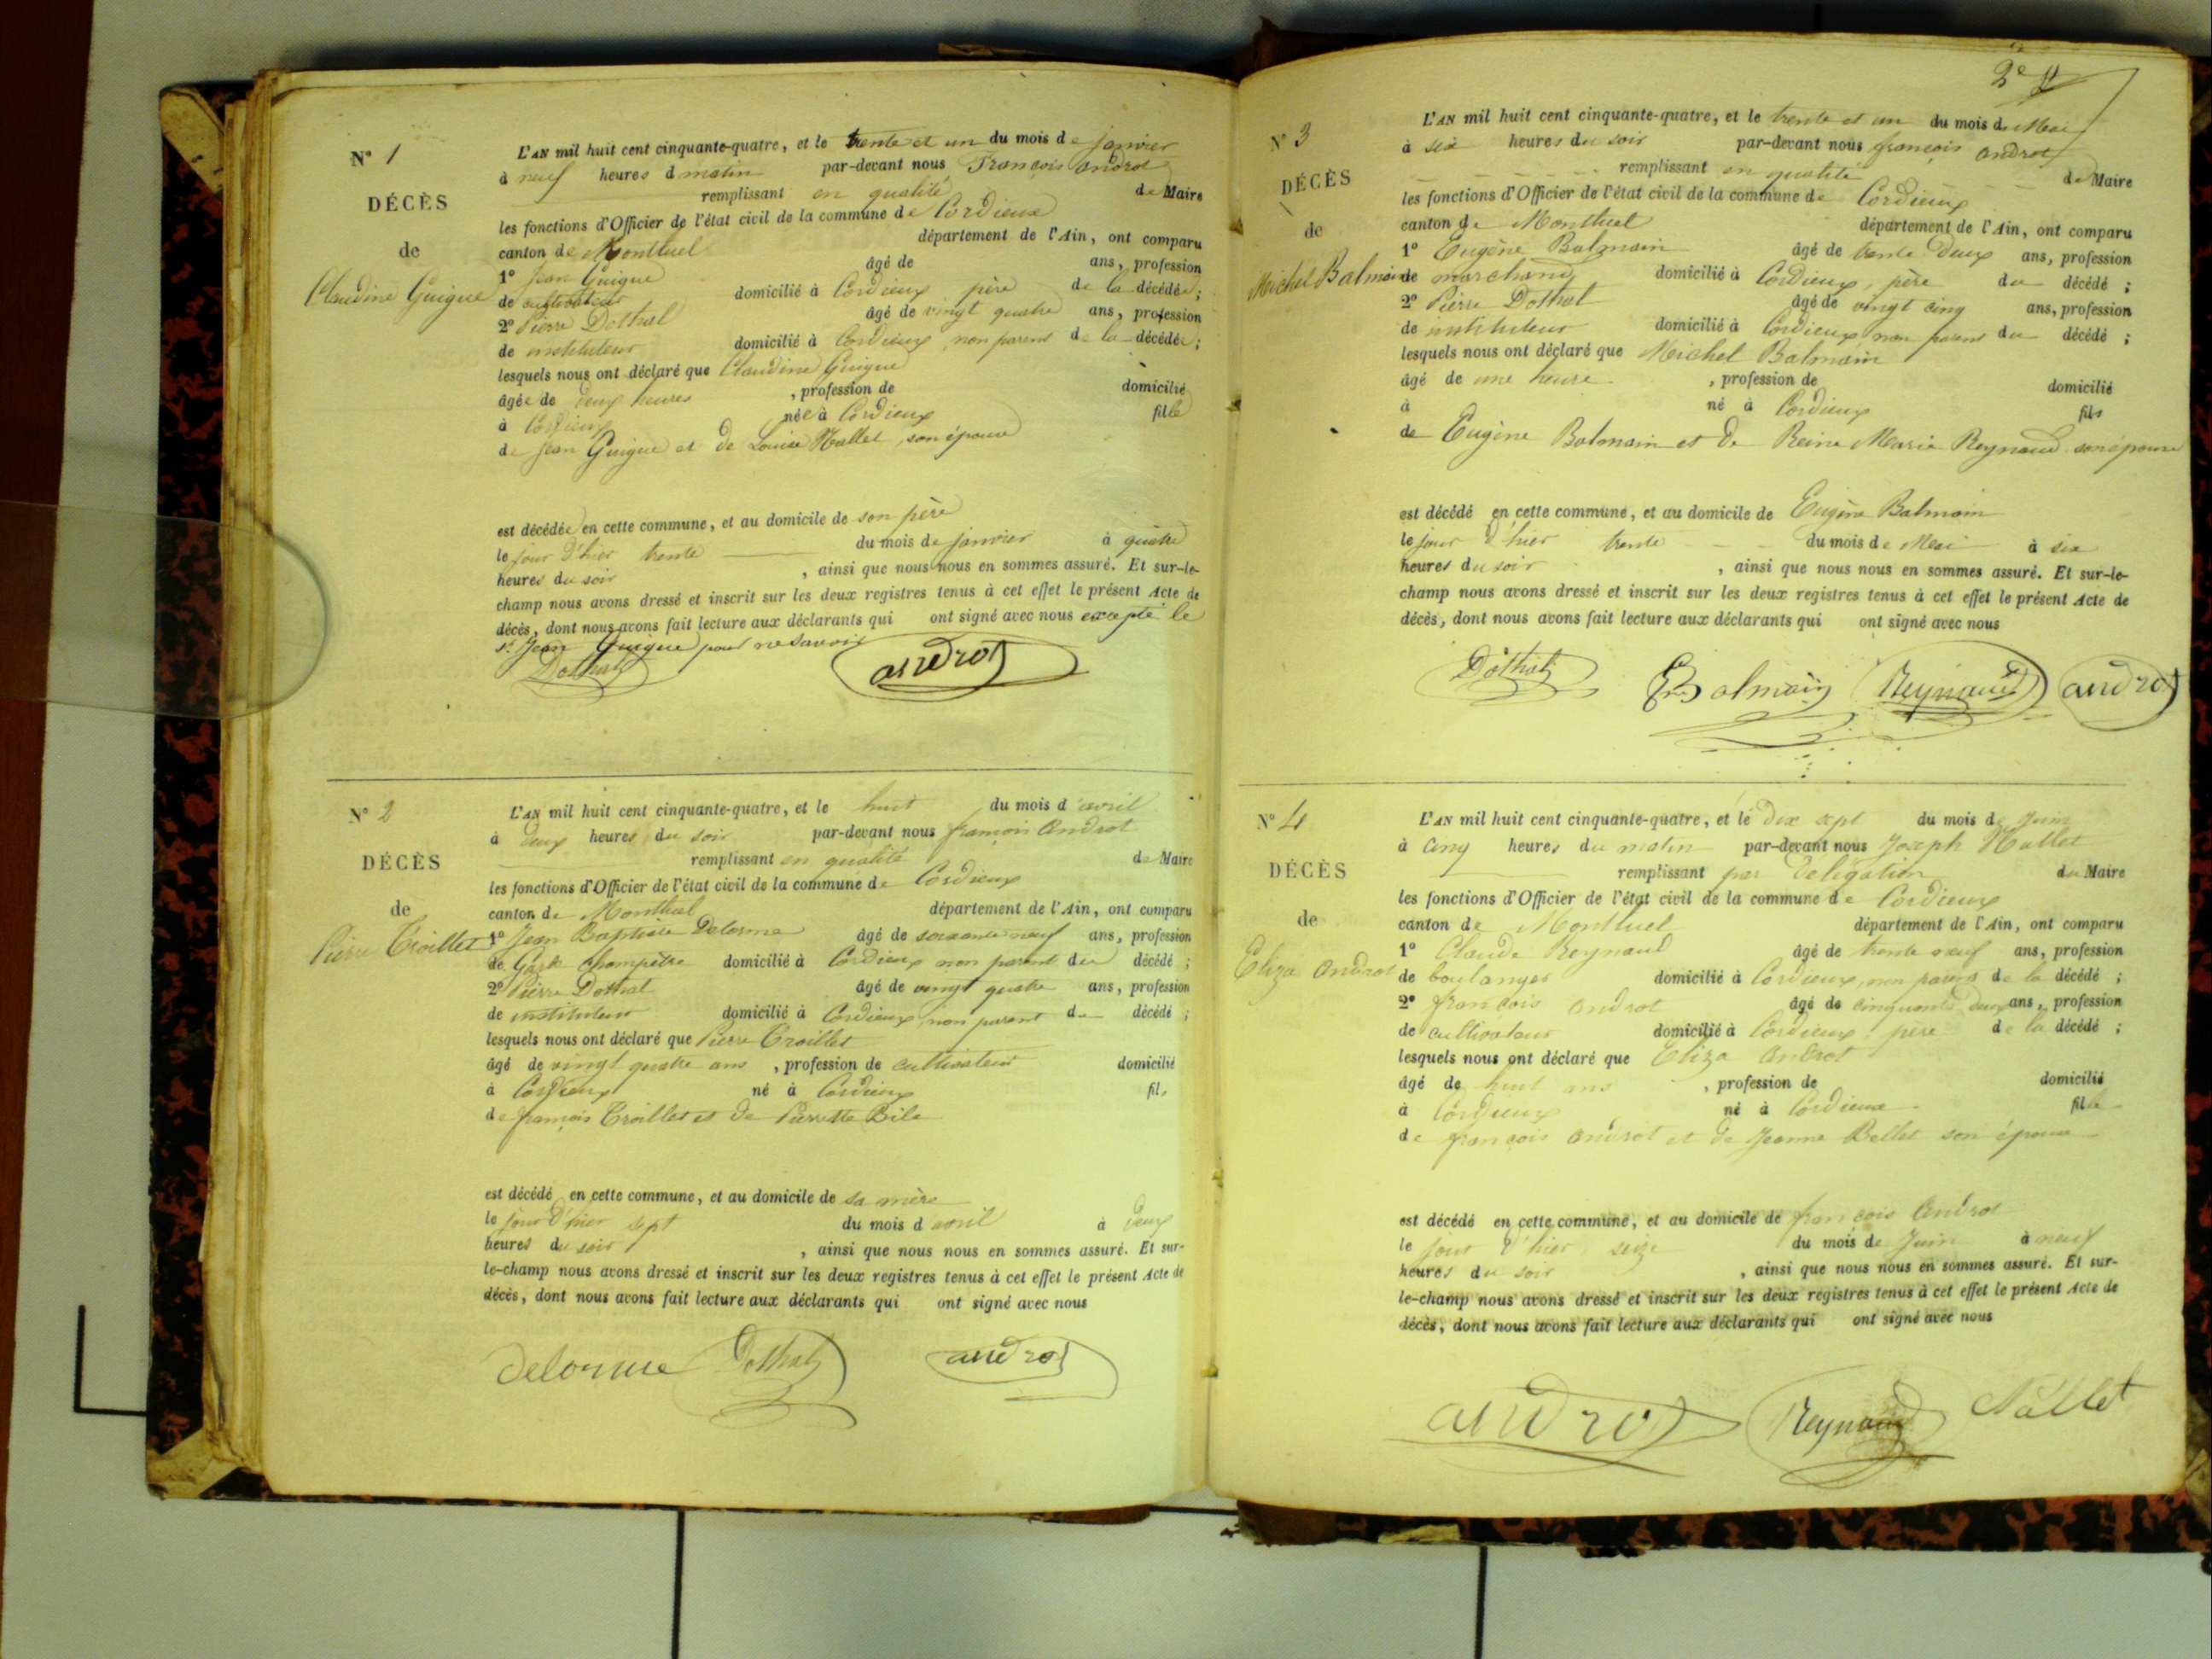 N° 1
DÉCÈS
de
Claudine Guigue
L'AN mil huit cent cinquante-quatre, et le trente et un du mois de janvier
à neuf heures d matin par-devant nous François Androt
remplissant en qualité de Maire
les fonctions d'Officier de l'état civil de la commune de Cordieux
canton de Montluel département de l'Ain, ont comparu
1° Jean Guigue âgé de ans, profession
de cultivateur domicilié à Cordieux père de la décédée ;
2° Pierre Dothal âgé de vingt quatre ans, profession
de instituteur domicilié à Cordieux, non parent de la décédée ;
lesquels nous ont déclaré que Claudine Guigue
âgée de deux heures , profession de domicilié
à Cordieux née à Cordieux fille
de Jean Guigue et de Louise Nallet, son épouse
est décédée en cette commune, et au domicile de son père
le jour d'hier trente du mois de janvier à quatre
heures du soir , ainsi que nous nous en sommes assuré. Et sur-le-
champ nous avons dressé et inscrit sur les deux registres tenus à cet effet le présent Acte de
décès, dont nous avons fait lecture aux déclarants qui ont signé avec nous excepté le
sr Jean Guigue pour ne savoir
Dothal androt
N° 2
DÉCÈS
de
Pierre Troillet
L'AN mil huit cent cinquante-quatre, et le huit du mois d'avril
à deux heures du soir par-devant nous françois Androt
remplissant en qualité de Maire
les fonctions d'Officier de l'état civil de la commune de Cordieux
canton de Montluel département de l'Ain, ont comparu
1° Jean Baptiste Delorme âgé de soixante neuf ans, profession
de Garde champêtre domicilié à Cordieux non parent du décédé ;
2° Pierre Dothal âgé de vingt quatre ans, profession
de instituteur domicilié à Cordieux, non parent du décédé ;
lesquels nous ont déclaré que Pierre Troillet
âgé de vingt quatre ans , profession de cultivateur domicilié
à Cordieux né à Cordieux fils
de françois Troillet et de Pierrette
est décédé en cette commune, et au domicile de sa mère
le jour d'hier sept du mois d avril à deux
heures du soir , ainsi que nous nous en sommes assuré. Et sur-
le-champ nous avons dressé et inscrit sur les deux registres tenus à cet effet le présent Acte de
décès, dont nous avons fait lecture aux déclarants qui ont signé avec nous
delorme Dothal androt
2e
N° 3
DÉCÈS
de
Michel Balmain
L'AN mil huit cent cinquante-quatre, et le trente et un du mois de Mai
à six heures du soir par-devant nous françois Androt
remplissant en qualité de Maire
les fonctions d'Officier de l'état civil de la commune de Cordieux
canton de Montluel département de l'Ain, ont comparu
1° Eugène Balmain âgé de trente deux ans, profession
de marchand domicilié à Cordieux, père du décédé ;
2° Pierre Dothal âgé de vingt cinq ans, profession
de instituteur domicilié à Cordieux non parent du décédé ;
lesquels nous ont déclaré que Michel Balmain
âgé de une heure , profession de domicilié
à né à Cordieux fils
de Eugène Balmain et de Reine Marie Reynaud son épouse
est décédé en cette commune, et au domicile de Eugène Balmain
le jour d'hier trente du mois de Mai à six
heures du soir , ainsi que nous nous en sommes assuré. Et sur-le-
champ nous avons dressé et inscrit sur les deux registres tenus à cet effet le présent Acte de
décès, dont nous avons fait lecture aux déclarants qui ont signé avec nous
Dothal Balmain Reynaud androt
N° 4
DÉCÈS
de
Eliza Androt
L'AN mil huit cent cinquante-quatre, et le dix sept du mois de Juin
à cinq heures du matin par-devant nous Joseph Nallet
remplissant par délégation du Maire
les fonctions d'Officier de l'état civil de la commune de Cordieux
canton de Montluel département de l'Ain, ont comparu
1° Claude Reynaud âgé de trente neuf ans, profession
de boulanger domicilié à Cordieux, non parent de la décédé ;
2° françois Androt âgé de cinquante deux ans, profession
de cultivateur domicilié à Cordieux père de la décédé ;
lesquels nous ont déclaré que Eliza Androt
âgé de huit ans , profession de domicilié
à Cordieux né à Cordieux fille
de françois Androt et de Jeanne Bellet son épouse
est décédé en cette commune, et au domicile de françois Androt
le jour d'hier seize du mois de Juin à neuf
heures du soir , ainsi que nous nous en sommes assuré. Et sur-
le-champ nous avons dressé et inscrit sur les deux registres tenus à cet effet le présent Acte de
décès, dont nous avons fait lecture aux déclarants qui ont signé avec nous
androt Reynaud Nallet